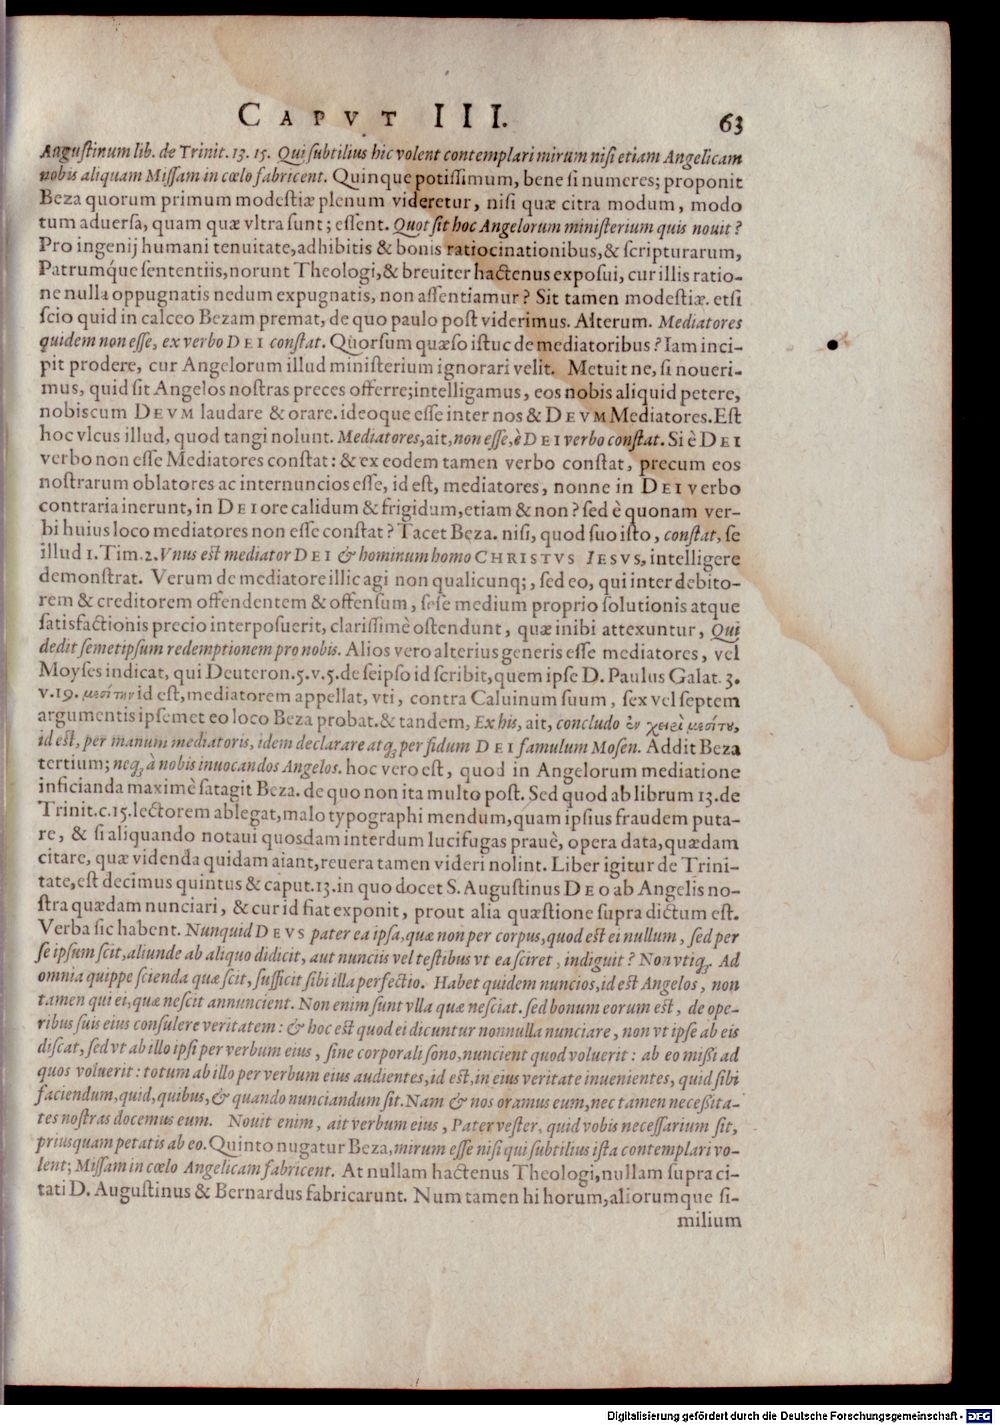 CAPVT III. 63
Augustinum lib. de Trinit. 13. 15. Qui subtilius hic volent contemplari mirum nisi etiam Angelicam
nobis aliquam Missam in cœlo fabricent. Quinque potissimum, bene si numeres; proponit
Beza quorum primum modestiæ plenum videretur, nisi quæ citra modum, modo
tum aduersa, quam quæ vltra sunt; essent. Quot sit hoc Angelorum ministerium quis nouit?
Pro ingenij humani tenuitate, adhibitis & bonis ratiocinationibus, & scripturarum,
Patrumq́ue sententiis, norunt Theologi, & breuiter hactenus exposui, cur illis ratio-
ne nulla oppugnatis nedum expugnatis, non assentiamur? Sit tamen modestiæ. etsi
scio quid in calceo Bezam premat, de quo paulo post viderimus. Alterum. Mediatores
quidem non esse, ex verbo DEI constat. Quorsum quæso istuc de mediatoribus? Iam inci-
pit prodere, cur Angelorum illud ministerium ignorari velit. Metuit ne, si noueri-
mus, quid sit Angelos nostras preces offerre; intelligamus, eos nobis aliquid petere,
nobiscum DEVM laudare & orare. ideoque esse inter nos & DEVM Mediatores. Est
hoc vlcus illud, quod tangi nolunt. Mediatores, ait, non esse, è DEI verbo constat. Si è DEI
verbo non esse Mediatores constat: & ex eodem tamen verbo constat, precum eos
nostrarum oblatores ac internuncios esse, id est, mediatores, nonne in DEI verbo
contraria inerunt, in DEI ore calidum & frigidum, etiam & non? sed è quonam ver-
bi huius loco mediatores non esse constat? Tacet Beza. nisi, quod suo isto, constat, se
illud 1. Tim. 2. Vnus est mediator DEI & hominum homo CHRISTVS IESVS, intelligere
demonstrat. Verum de mediatore illic agi non qualicunq;, sed eo, qui inter debito-
rem & creditorem offendentem & offensum, sese medium proprio solutionis atque
satisfactionis precio interposuerit, clarissimè ostendunt, quæ inibi attexuntur, Qui
dedit semetipsum redemptionem pro nobis. Alios vero alterius generis esse mediatores, vel
Moyses indicat, qui Deuteron. 5. v. 5. de seipso id scribit, quem ipse D. Paulus Galat. 3.
v. 19. μεσίτην id est, mediatorem appellat, vti, contra Caluinum suum, sex vel septem
argumentis ipsemet eo loco Beza probat. & tandem, Ex his, ait, concludo ἐν χειρὶ μεσίτου,
id est, per manum mediatoris, idem declarare atq; per fidum DEI famulum Mosen. Addit Beza
tertium; neq; à nobis inuocandos Angelos. hoc vero est, quod in Angelorum mediatione
inficianda maximè satagit Beza. de quo non ita multo post. Sed quod ab librum 13. de
Trinit. c. 15. lectorem ablegat, malo typographi mendum, quam ipsius fraudem puta-
re, & si aliquando notaui quosdam interdum lucifugas prauè, opera data, quædam
citare, quæ videnda quidam aiant, reuera tamen videri nolint. Liber igitur de Trini-
tate, est decimus quintus & caput. 13. in quo docet S. Augustinus DEO ab Angelis no-
stra quædam nunciari, & cur id fiat exponit, prout alia quæstione supra dictum est.
Verba sic habent. Nunquid DEVS pater ea ipsa, quæ non per corpus, quod est ei nullum, sed per
se ipsum scit, aliunde ab aliquo didicit, aut nunciis vel testibus vt ea sciret, indiguit? Non vtiq;. Ad
omnia quippe scienda quæ scit, sufficit sibi illa perfectio. Habet quidem nuncios, id est Angelos, non
tamen qui ei, quæ nescit annuncient. Non enim sunt vlla quæ nesciat. sed bonum eorum est, de ope-
ribus suis eius consulere veritatem: & hoc est quod ei dicuntur nonnulla nunciare, non vt ipse ab eis
discat, sed vt ab illo ipsi per verbum eius, sine corporali sono, nuncient quod voluerit: ab eo missi ad
quos voluerit: totum ab illo per verbum eius audientes, id est, in eius veritate inuenientes, quid sibi
faciendum, quid, quibus, & quando nunciandum sit. Nam & nos oramus eum, nec tamen necessita-
tes nostras docemus eum. Nouit enim, ait verbum eius, Pater vester, quid vobis necessarium sit,
priusquam petatis ab eo. Quinto nugatur Beza, mirum esse nisi qui subtilius ista contemplari vo-
lent; Missam in cœlo Angelicam fabricent. At nullam hactenus Theologi, nullam supra ci-
tati D. Augustinus & Bernardus fabricarunt. Num tamen hi horum, aliorumque si-
milium
Digitalisierung gefördert durch die Deutsche Forschungsgemeinschaft - DFG